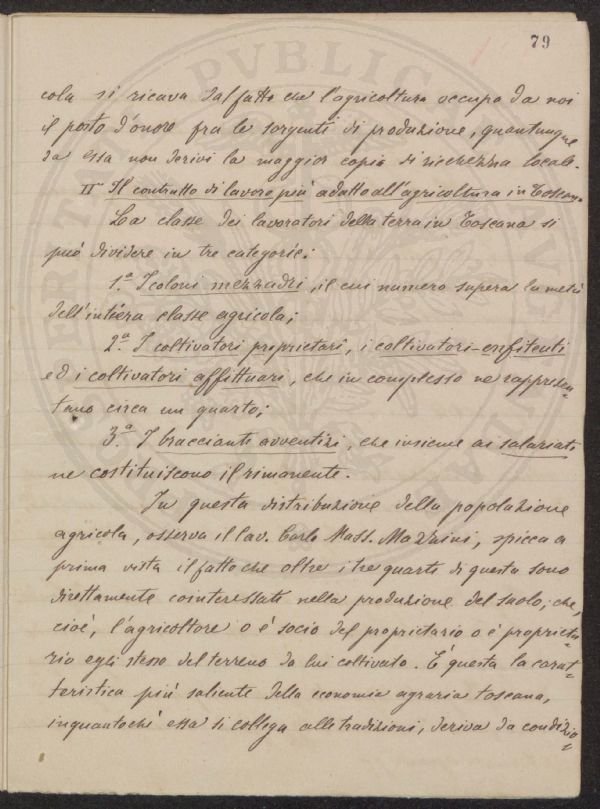 79
cola si ricava dal fatto che l'agricoltura occupa da noi
il posto d'onore fra le sorgenti di produzione, quantunque
da essa non derivi la maggior copia di ricchezza locale.
II° Il contratto di lavoro più adatto all'agricoltura in Toscana.
La classe dei lavoratori della terra in Toscana si
può dividere in tre categorie:
1.ª I coloni mezzadri, il cui numero supera la metà
dell'intiera classe agricola;
2.ª I coltivatori proprietari, i coltivatori-enfiteuti
ed i coltivatori affittuari, che in complesso ne rappresen-
tano circa un quarto;
3.ª I braccianti avventizi, che insieme ai salariati
ne costituiscono il rimanente.
In questa distribuzione della popolazione
agricola, osserva il Cav. Carlo Mass. Mazzini, spicca a
prima vista il fatto che oltre i tre quarti di questa sono
direttamente cointeressati nella produzione del suolo; che,
cioè, l'agricoltore o è socio del proprietario o è proprieta-
rio egli stesso del terreno da lui coltivato. È questa la carat-
teristica più saliente della economia agraria toscana,
inquantochè essa si collega alle tradizioni, deriva da condizio-